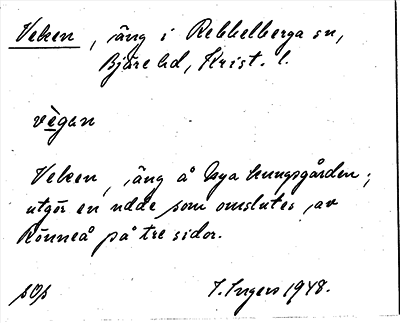 Veken, äng i Rebbelberga sn,
Bjäre hd, Krist. l.
vègan
Veken, äng å Nya Kungsgården;
utgör en udde som omslutes av
Rönneå på tre sidor.
sOp I. Ingers 1948.